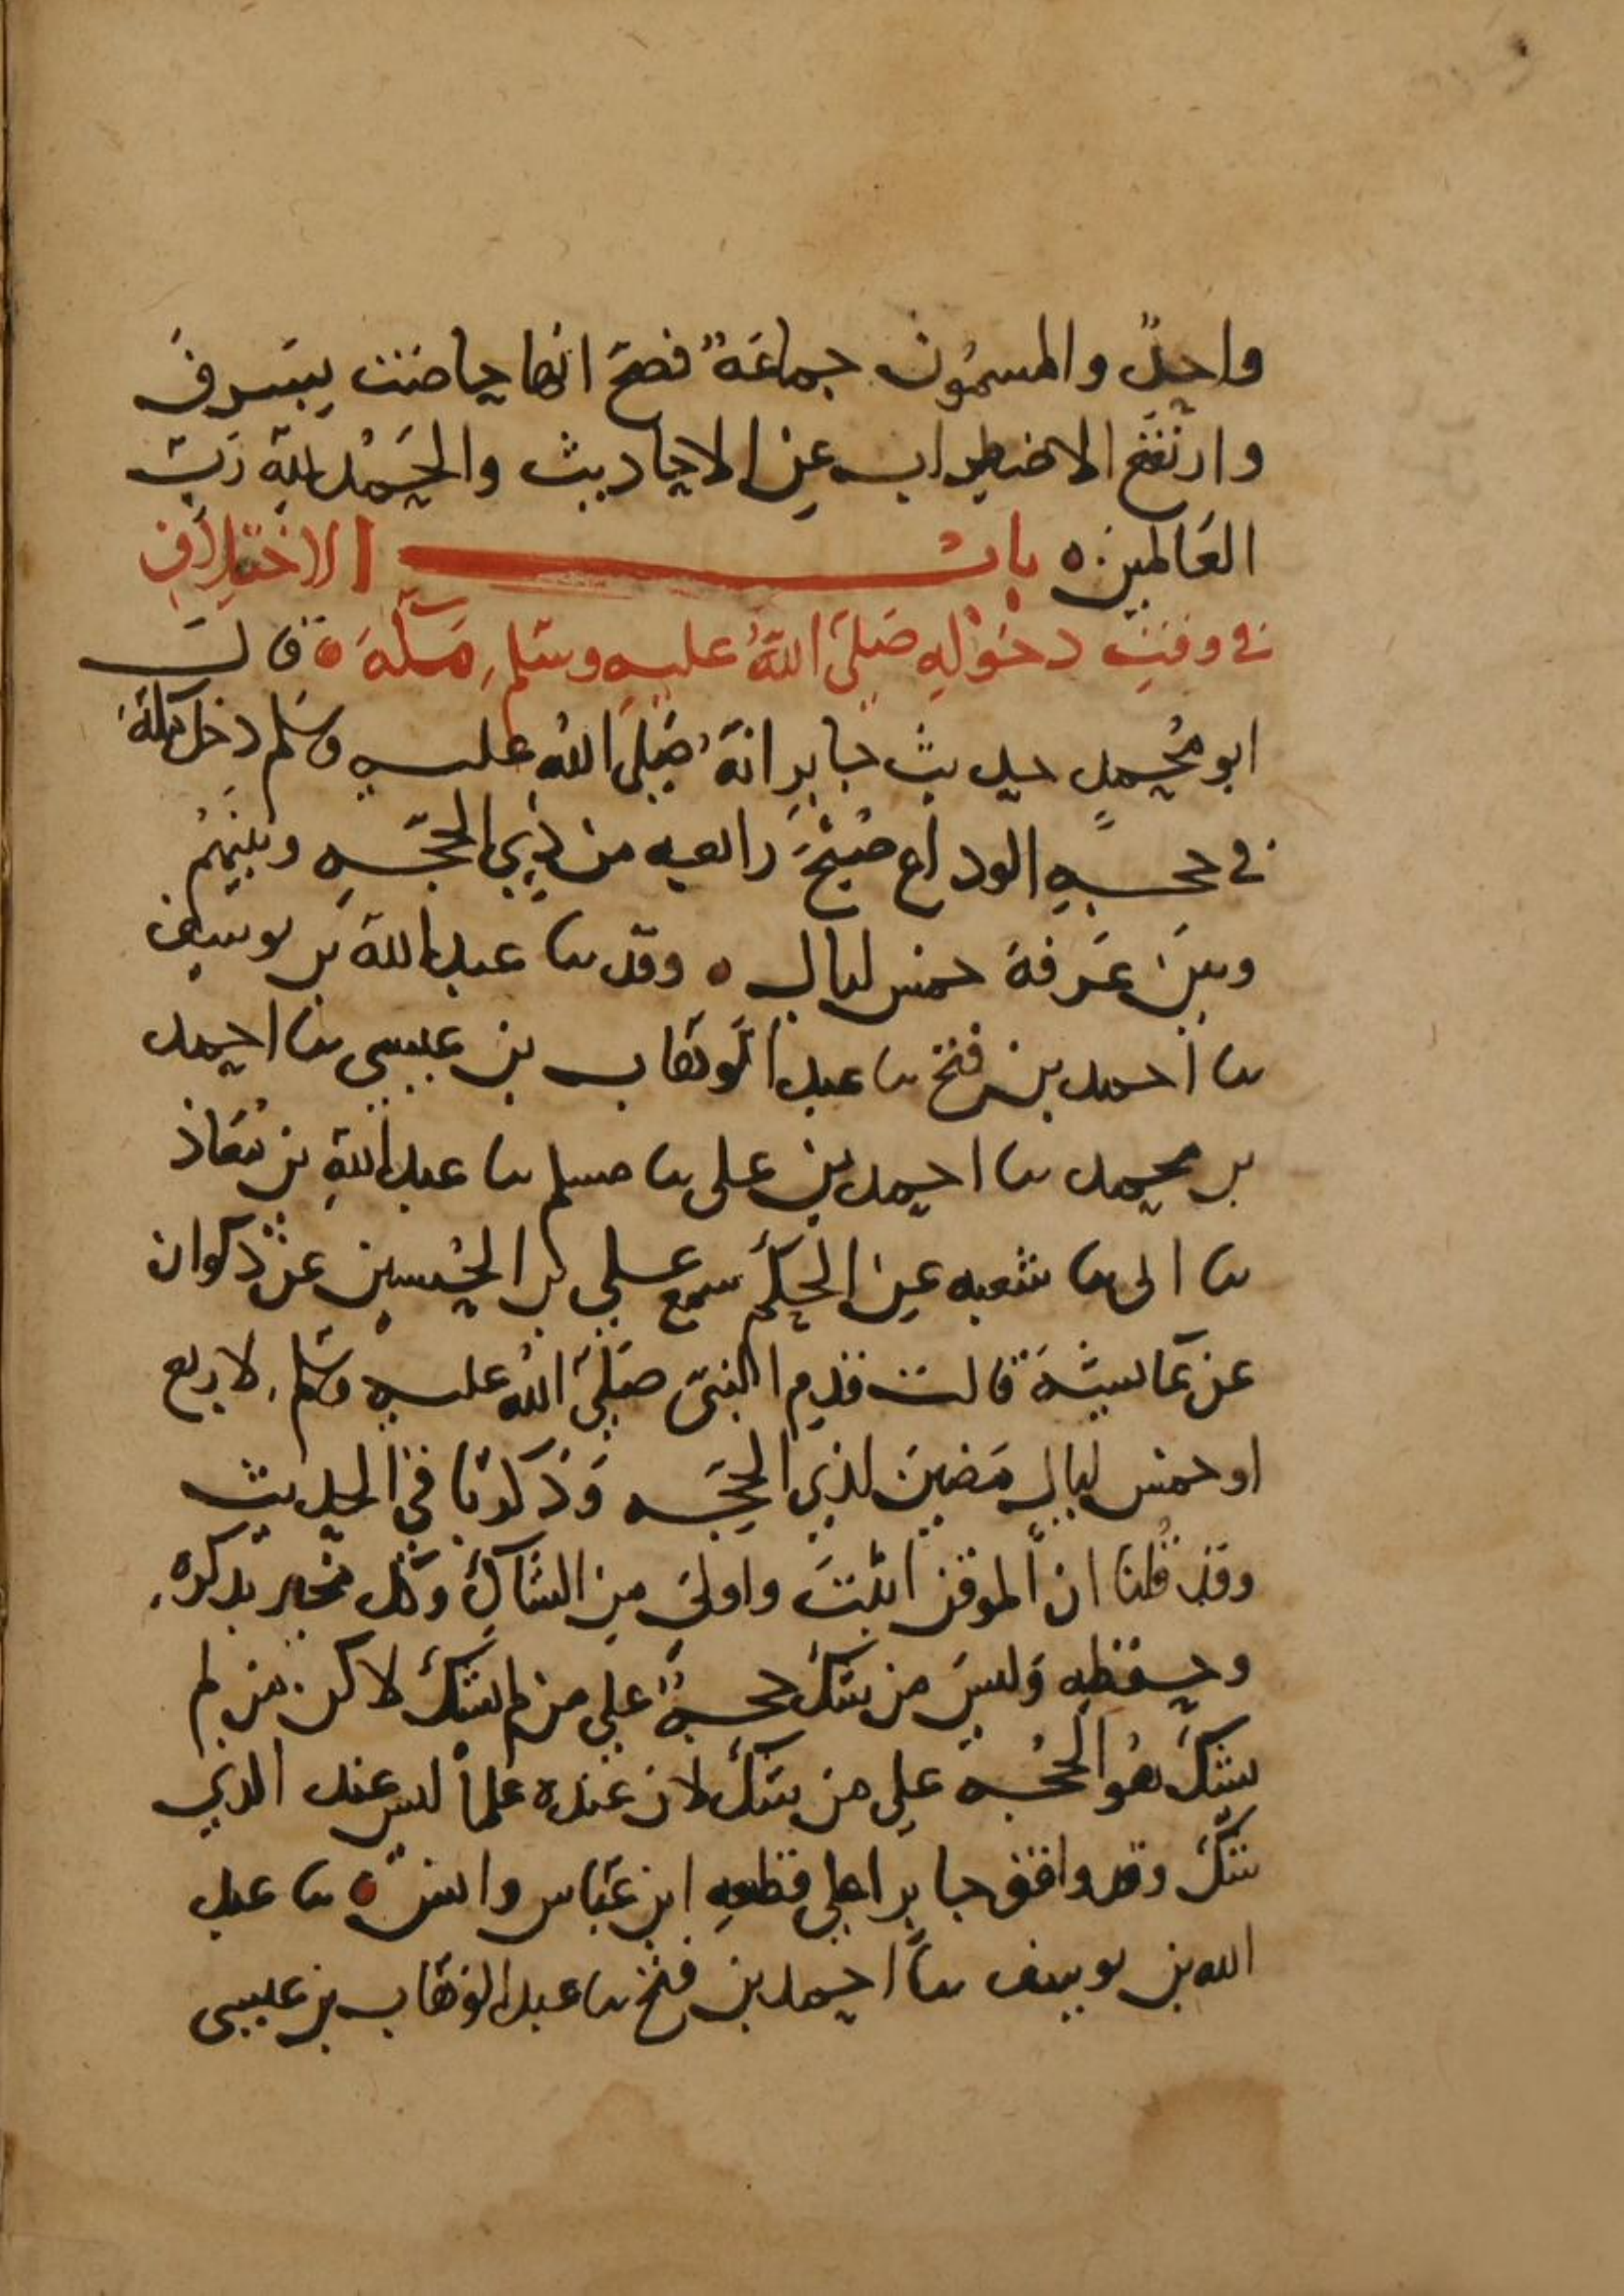 واحدٌ والمسمون جماعةٌ فصحّ انها حاضت بسرف
وارتفع الاضطراب عن الاحاديث والحمد لله ربّ
العالمين ه باب الاختلاف
في وقت دخوله صلى الله عليه وسلم مكة ه قال
ابو محمد حديث جابر انه صلى الله عليه وسلم دخل مكة
في حجه الوداع صبح رابعه من ذي الحجه وبينهم
وبين عرفة خمس ليال ه وقد ثنا عبد الله بن يوسف
ثنا احمد بن فتح ثنا عبد الوهاب بن عيسى ثنا احمد
بن محمد ثنا احمد بن على ثنا مسلم ثنا عبيد الله بن معاذ
ثنا ابى ثنا شعبه عن الحكم سمع علي بن الحسين عن ذكوان
عن عايشة قالت قدم النبى صلى الله عليه وسلم لاربع
او خمس ليال مضين لذي الحجه وذكر باقي الحديث
وقد قلنا ان الموقن اثبت واولى من الشاك وكل مخبر بذكره
وحفظه وليس من شك حجه على من لم يشك لاكن من لم
يشك هو الحجه على من شك لان عنده علماً ليس عند الذي
شك وقد وافق جابرا على قطعه ابن عباس وانس ه ثنا عبد
الله بن يوسف ثنا احمد بن فتح ثنا عبد الوهاب بن عيسى